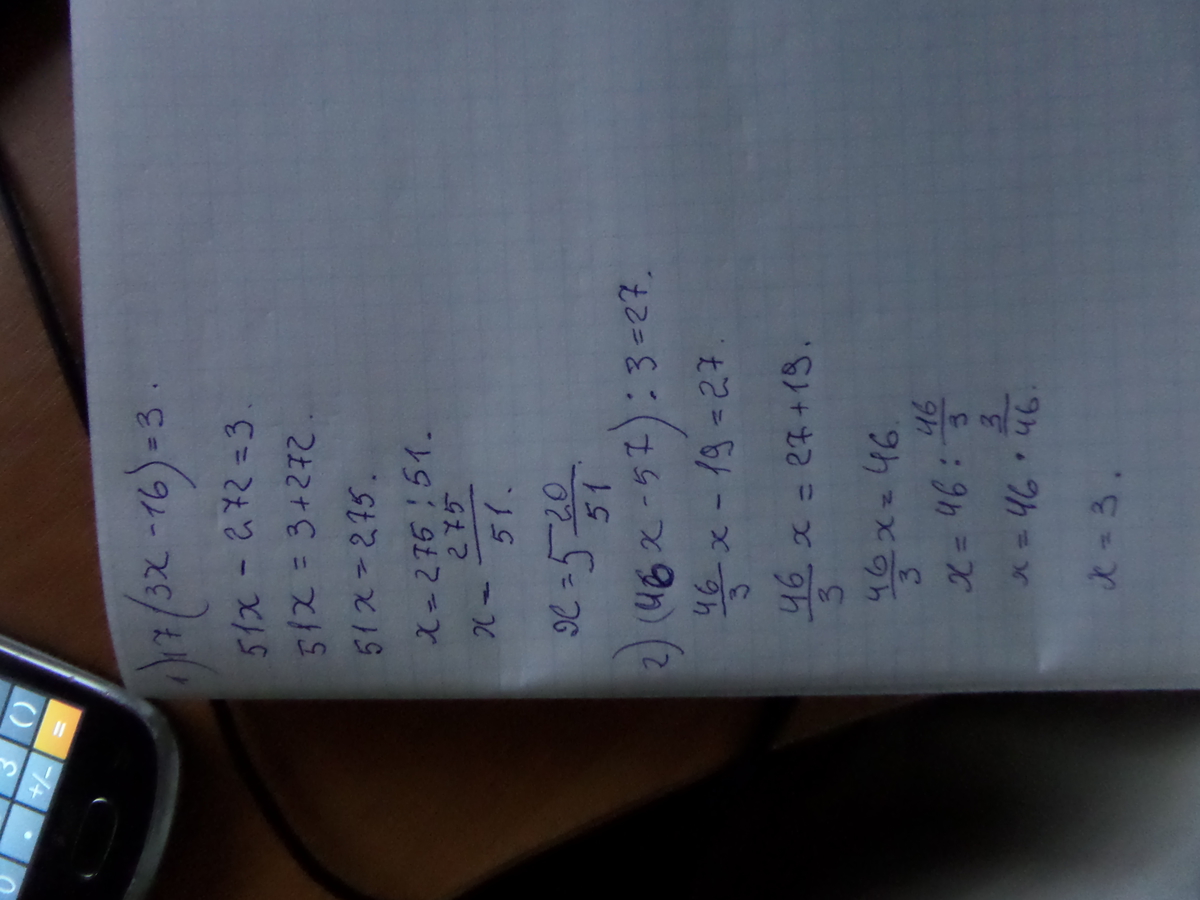 1) 17(3x-16)=3.
51x - 272=3.
51x = 3+272.
51x=275.
x=275:51.
x= 275/51.
x=5 20/51.
2) (46x-57):3=27.
46/3 x - 19=27.
46/3 x = 27+19.
46/3 x=46.
x=46: 46/3
x=46 · 3/46.
x=3.
0
3
=
+/-
.
0